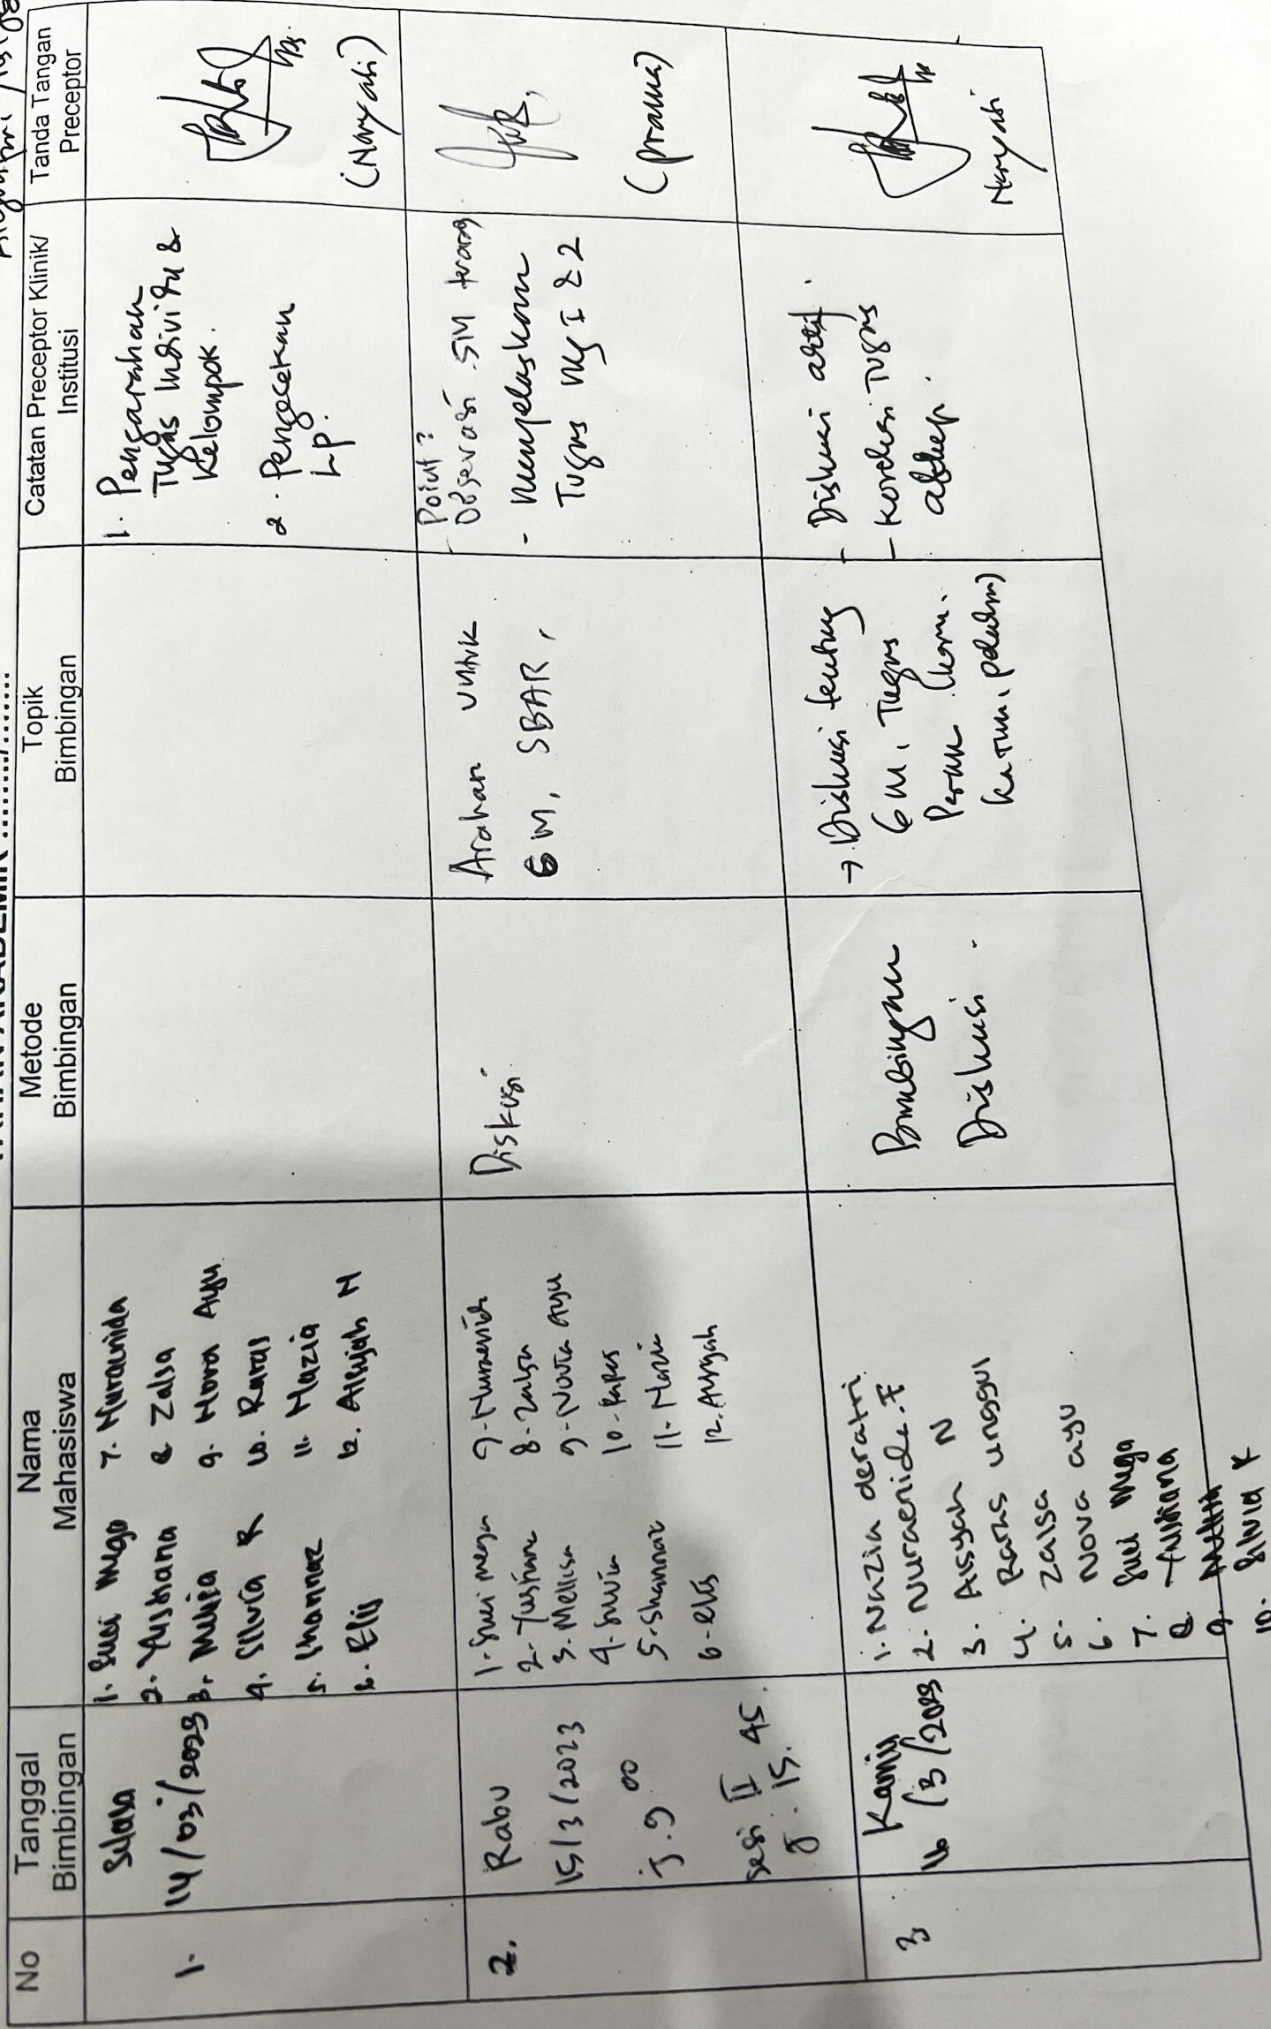 TAHAN AKADEMIK ......../........
No
Tanggal
Bimbingan
Nama
Mahasiswa
Metode
Bimbingan
Topik
Bimbingan
Catatan Preceptor Klinik/
Institusi
Tanda Tangan
Preceptor
1.
Selasa
14/03/2023
1. Suci Mega
2. Yustiana
3. Melia
4. Silvia R
5. Shannaz
6. Elis
7. Nuraenida
8 Zalsa
9. Nova Ayu
10. Raras
11. Nazia
12. Aisyah N
1. Pengarahan
Tugas Individu &
Kelompok.
2. Pengecekan
LP.
(Naryati)
2.
Rabu
15/3/2023
J. 9 00
Sesi II
J. 15. 45
1. Suci mega
2. Yustiana
3. Mellisa
4. Silvia
5. Shannaz
6. elis
7. Nuraenida
8. Zalsa
9. Nova Ayu
10. Raras
11. Nazia
12. Aisyah
Diskusi
Arahan untuk
6 M, SBAR,
- Point2
Observasi SIM ruang
- Menjelaskan
Tugas mg I & 2
(prama)
3
Kamis
16/3/2023
1. Nazia deratri
2. Nuraenida. F
3. Aisyah N
4. Raras unggul
5. Zalsa
6. Nova ayu
7. Suci Mega
8. Yustiana
9. Mellia
10. Silvia R
Bimbingan
Diskusi.
→ Diskusi tentang
6 M, Tugas
Peran (karu,
Katim, pelaksana)
- Diskusi aktif.
- Koreksi Tugas
askep.
Naryati